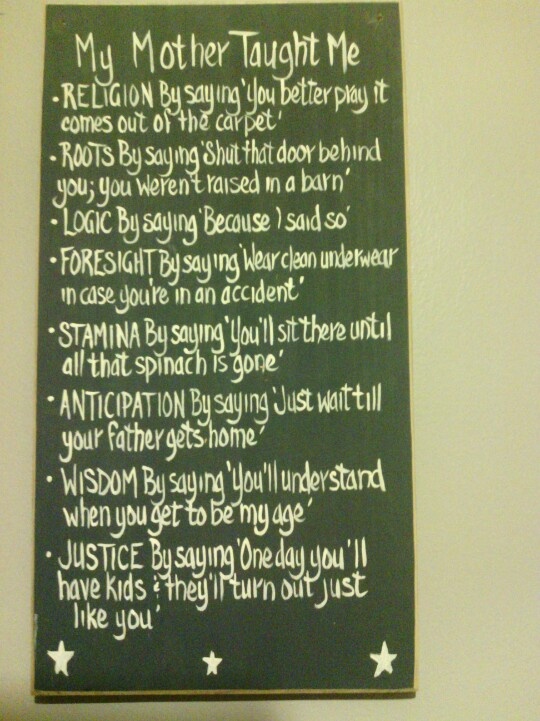 My Mother Taught Me
• RELIGION By saying 'You better pray it
comes out of the carpet'
• ROOTS By saying 'Shut that door behind
you; you weren't raised in a barn'
• LOGIC By saying 'Because I said so'
• FORESIGHT By saying 'Wear clean underwear
in case you're in an accident'
• STAMINA By saying 'You'll sit there until
all that spinach is gone'
• ANTICIPATION By saying 'Just wait till
your father gets home'
• WISDOM By saying 'You'll understand
when you get to be my age'
• JUSTICE By saying 'One day you'll
have kids & they'll turn out just
like you'